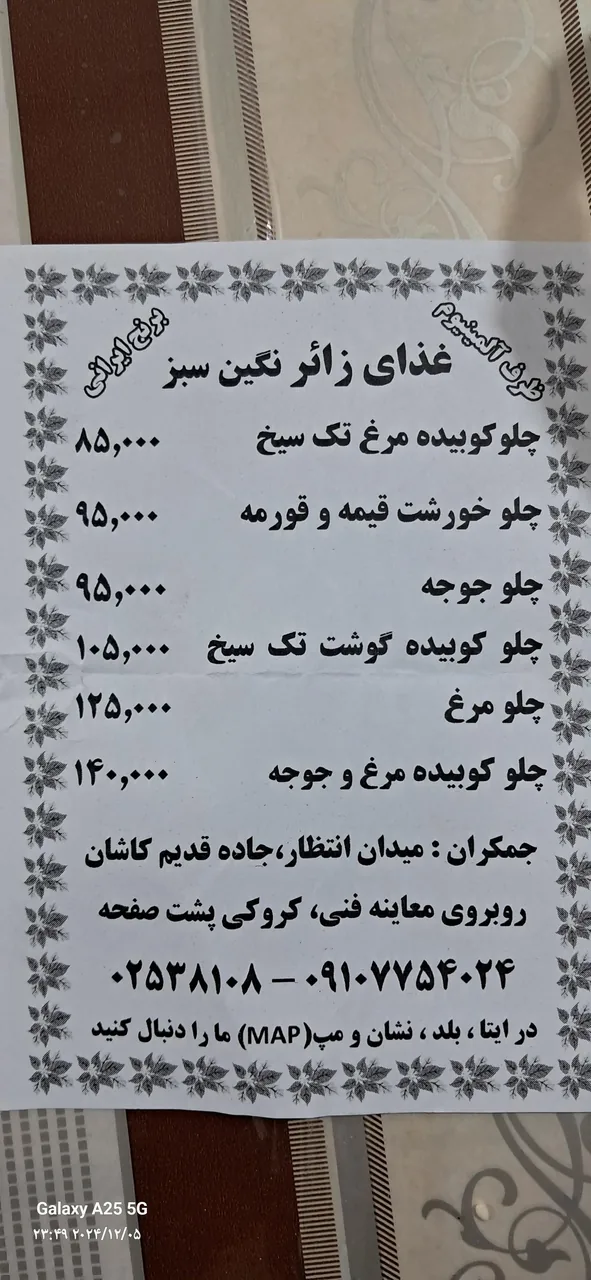 ظرف آلمینیوم
برنج ایرانی
غذای زائر نگین سبز
چلوکوبیده مرغ تک سیخ ۸۵,۰۰۰
چلو خورشت قیمه و قورمه ۹۵,۰۰۰
چلو جوجه ۹۵,۰۰۰
چلو کوبیده گوشت تک سیخ ۱۰۵,۰۰۰
چلو مرغ ۱۲۵,۰۰۰
چلو کوبیده مرغ و جوجه ۱۴۰,۰۰۰
جمکران : میدان انتظار،جاده قدیم کاشان
روبروی معاینه فنی، کروکی پشت صفحه
۰۹۱۰۷۷۵۴۰۲۴ – ۰۲۵۳۸۱۰۸
در ایتا ، بلد ، نشان و مپ(MAP) ما را دنبال کنید
Galaxy A25 5G
۲۳:۴۹ ۲۰۲۴/۱۲/۰۵